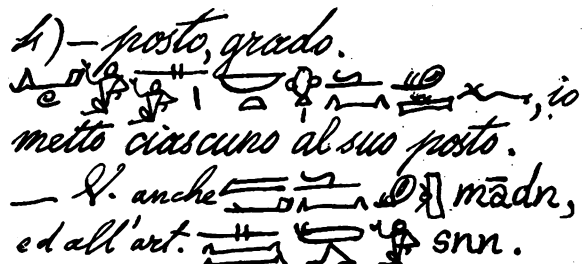 4) – posto, grado.
, io
metto ciascuno al suo posto.
— V. anche mādn,
ed all'art. snn.